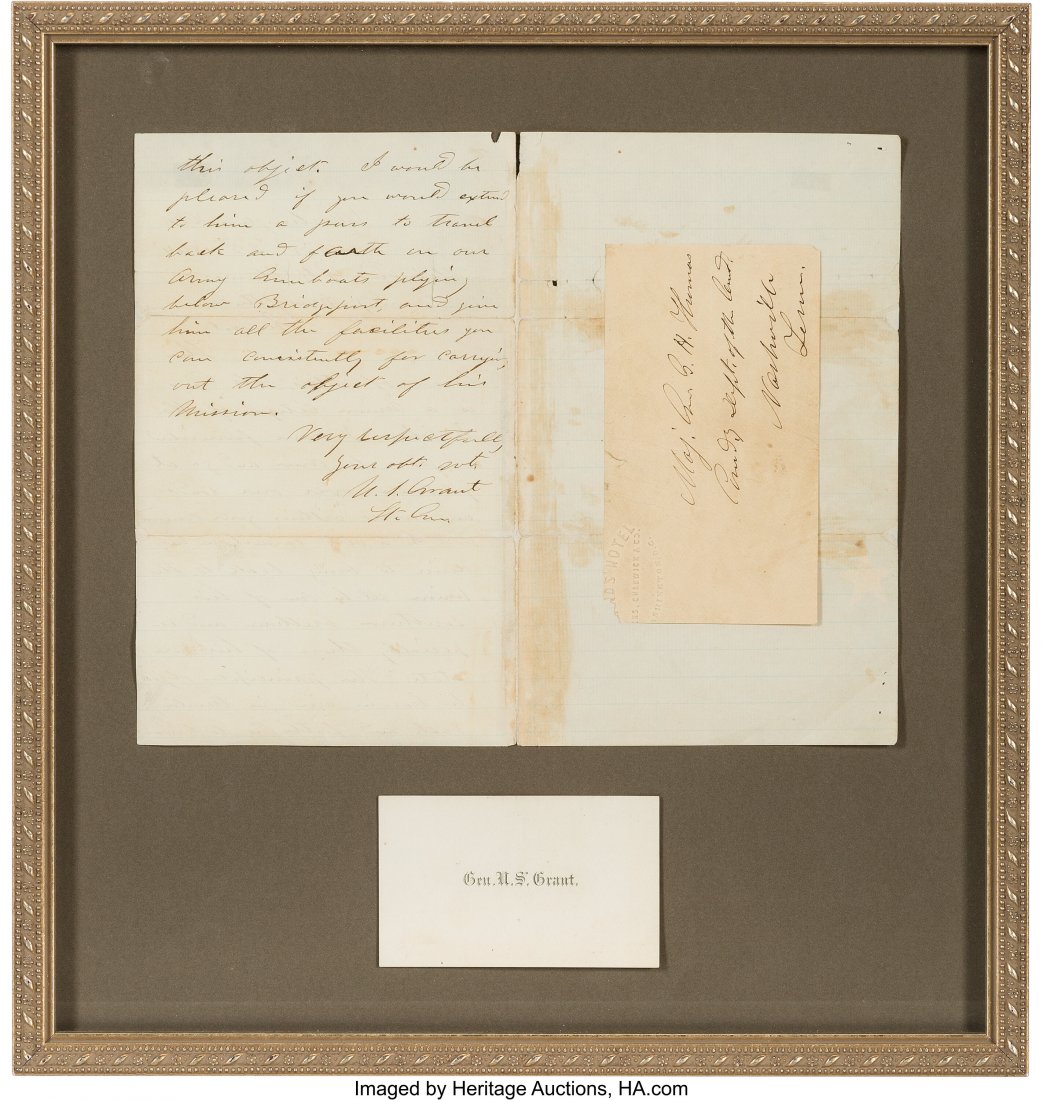 this object. I would be
pleased if you would extend
to him a pass to travel
back and forth on our
Army Gunboats plying
below Bridgeport, and give
him all the facilities you
can consistently for carrying
out the object of his
Mission.
Very respectfully
your obt. svt.
U. S. Grant
Lt. Gen
Maj. Gen. G. H. Thomas
Comd.g Dept. of the Cumb.
Nashville
Tenn.
HOTEL
CHADWICK & CO.
Gen. U. S. Grant.
Imaged by Heritage Auctions, HA.com